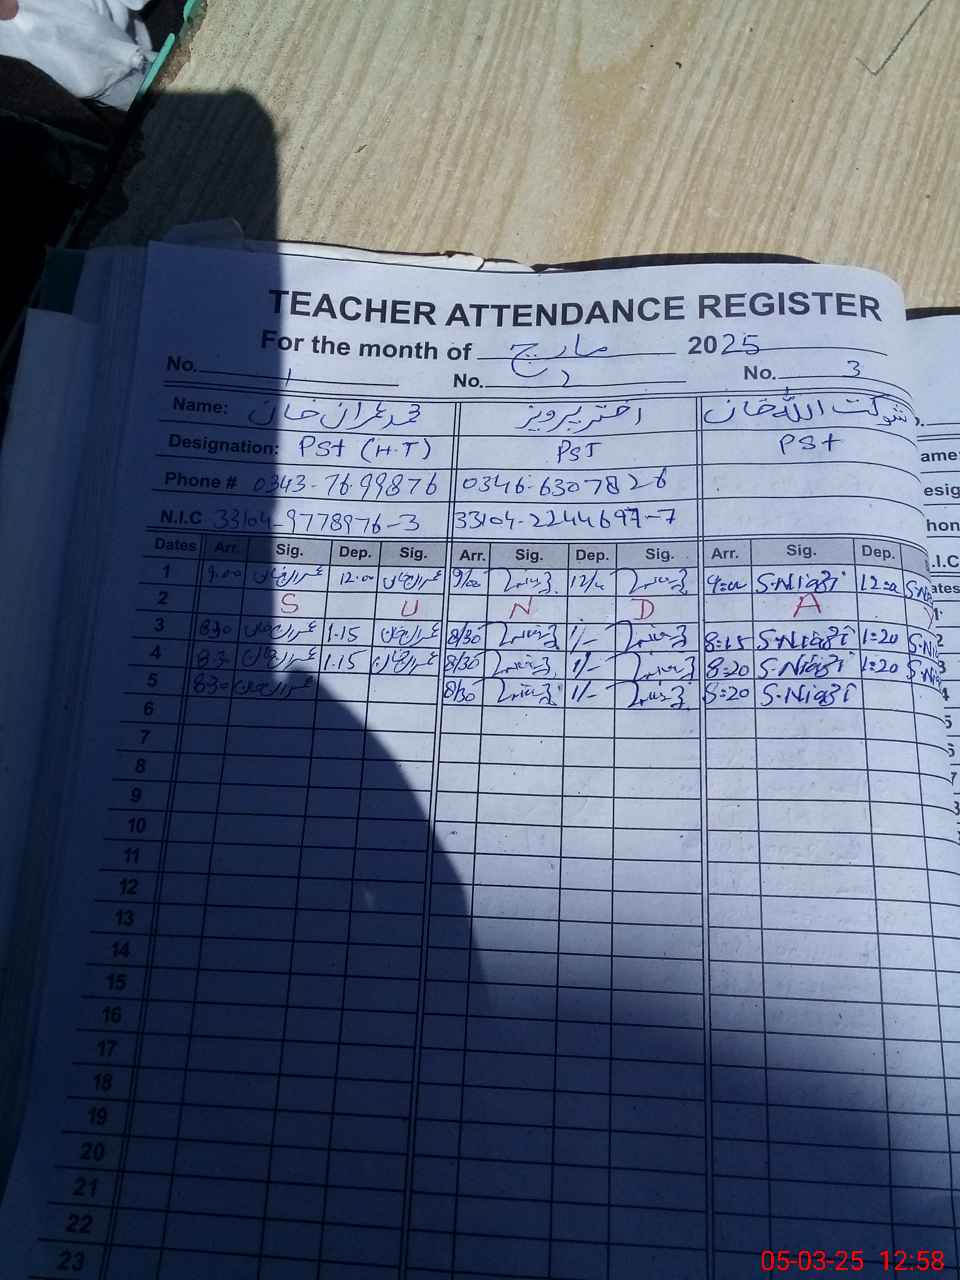 TEACHER ATTENDANCE REGISTER
For the month of مارچ 2025
No. 1 No. 2 No. 3
Name: محمد عمران خان اختر پرویز شوکت اللہ خان
Designation: PST (H.T) PST PST
Phone # 0343-7699876 0346-6307826
N.I.C 33104-9778976-3 33104-2244697-7
Dates Arr. Sig. Dep. Sig. Arr. Sig. Dep. Sig. Arr. Sig. Dep.
1 9.00 عمران خان 12.00 عمران خان 9/00 12/00 S.Niazi
2 S U N D A Y
3 830 عمران خان 1.15 عمران خان 8/30 1/- 8:15 S.Niazi 1:20
4 83 عمران خان 1.15 عمران خان 8/30 1/- 8:20 S.Niazi 1:20
5 830 عمران خان 8/30 1/- 8:20 S.Niazi
6
7
8
9
10
11
12
13
14
15
16
17
18
19
20
21
22
23
05-03-25 12:58